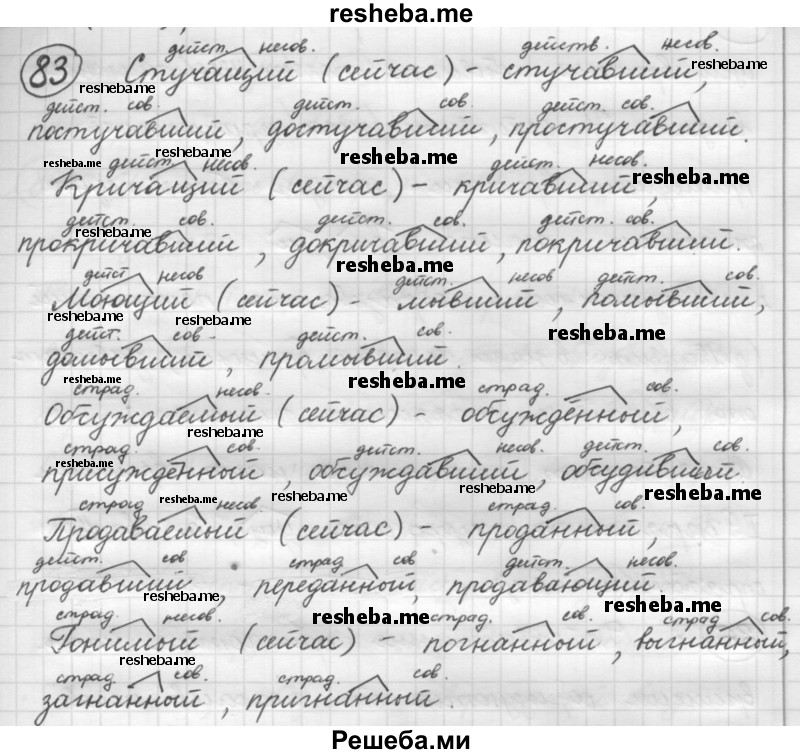 resheba.me
дейст. несов. действ. несов.
83 Стучащий (сейчас) - стучавший,
resheba.me resheba.me
дейст. сов. дейст. сов дейст. сов.
постучавший, достучавший, простучавший.
resheba.me resheba.me resheba.me
дейст. несов. дейст. несов.
Кричащий (сейчас) - кричавший,
resheba.me
дейст. сов. дейст. сов. дейст. сов.
прокричавший, докричавший, покричавший.
resheba.me resheba.me
дейст несов дейст. несов дейст. сов.
Моющий (сейчас) - мывший, помывший,
resheba.me resheba.me resheba.me
дейст. сов- дейст. сов.
домывший, промывший.
resheba.me resheba.me
страд. несов. страд. сов.
Обсуждаемый (сейчас) - обсуждённый,
resheba.me
страд. сов. дейст. несов. дейст. сов.
присуждённый, обсуждавший, обсудивший.
resheba.me resheba.me resheba.me resheba.me
страд resheba.me несов.
Продаваемый (сейчас) - проданный,
дейст. сов страд сов дейст. несов.
продавший, переданный, продавающий.
resheba.me resheba.me resheba.me
страд. несов. страд. сов. страд. сов.
Гонимый (сейчас) - погнанный, выгнанный,
resheba.me
страд. сов. страд. сов.
загнанный, пригнанный.
Решеба.ми